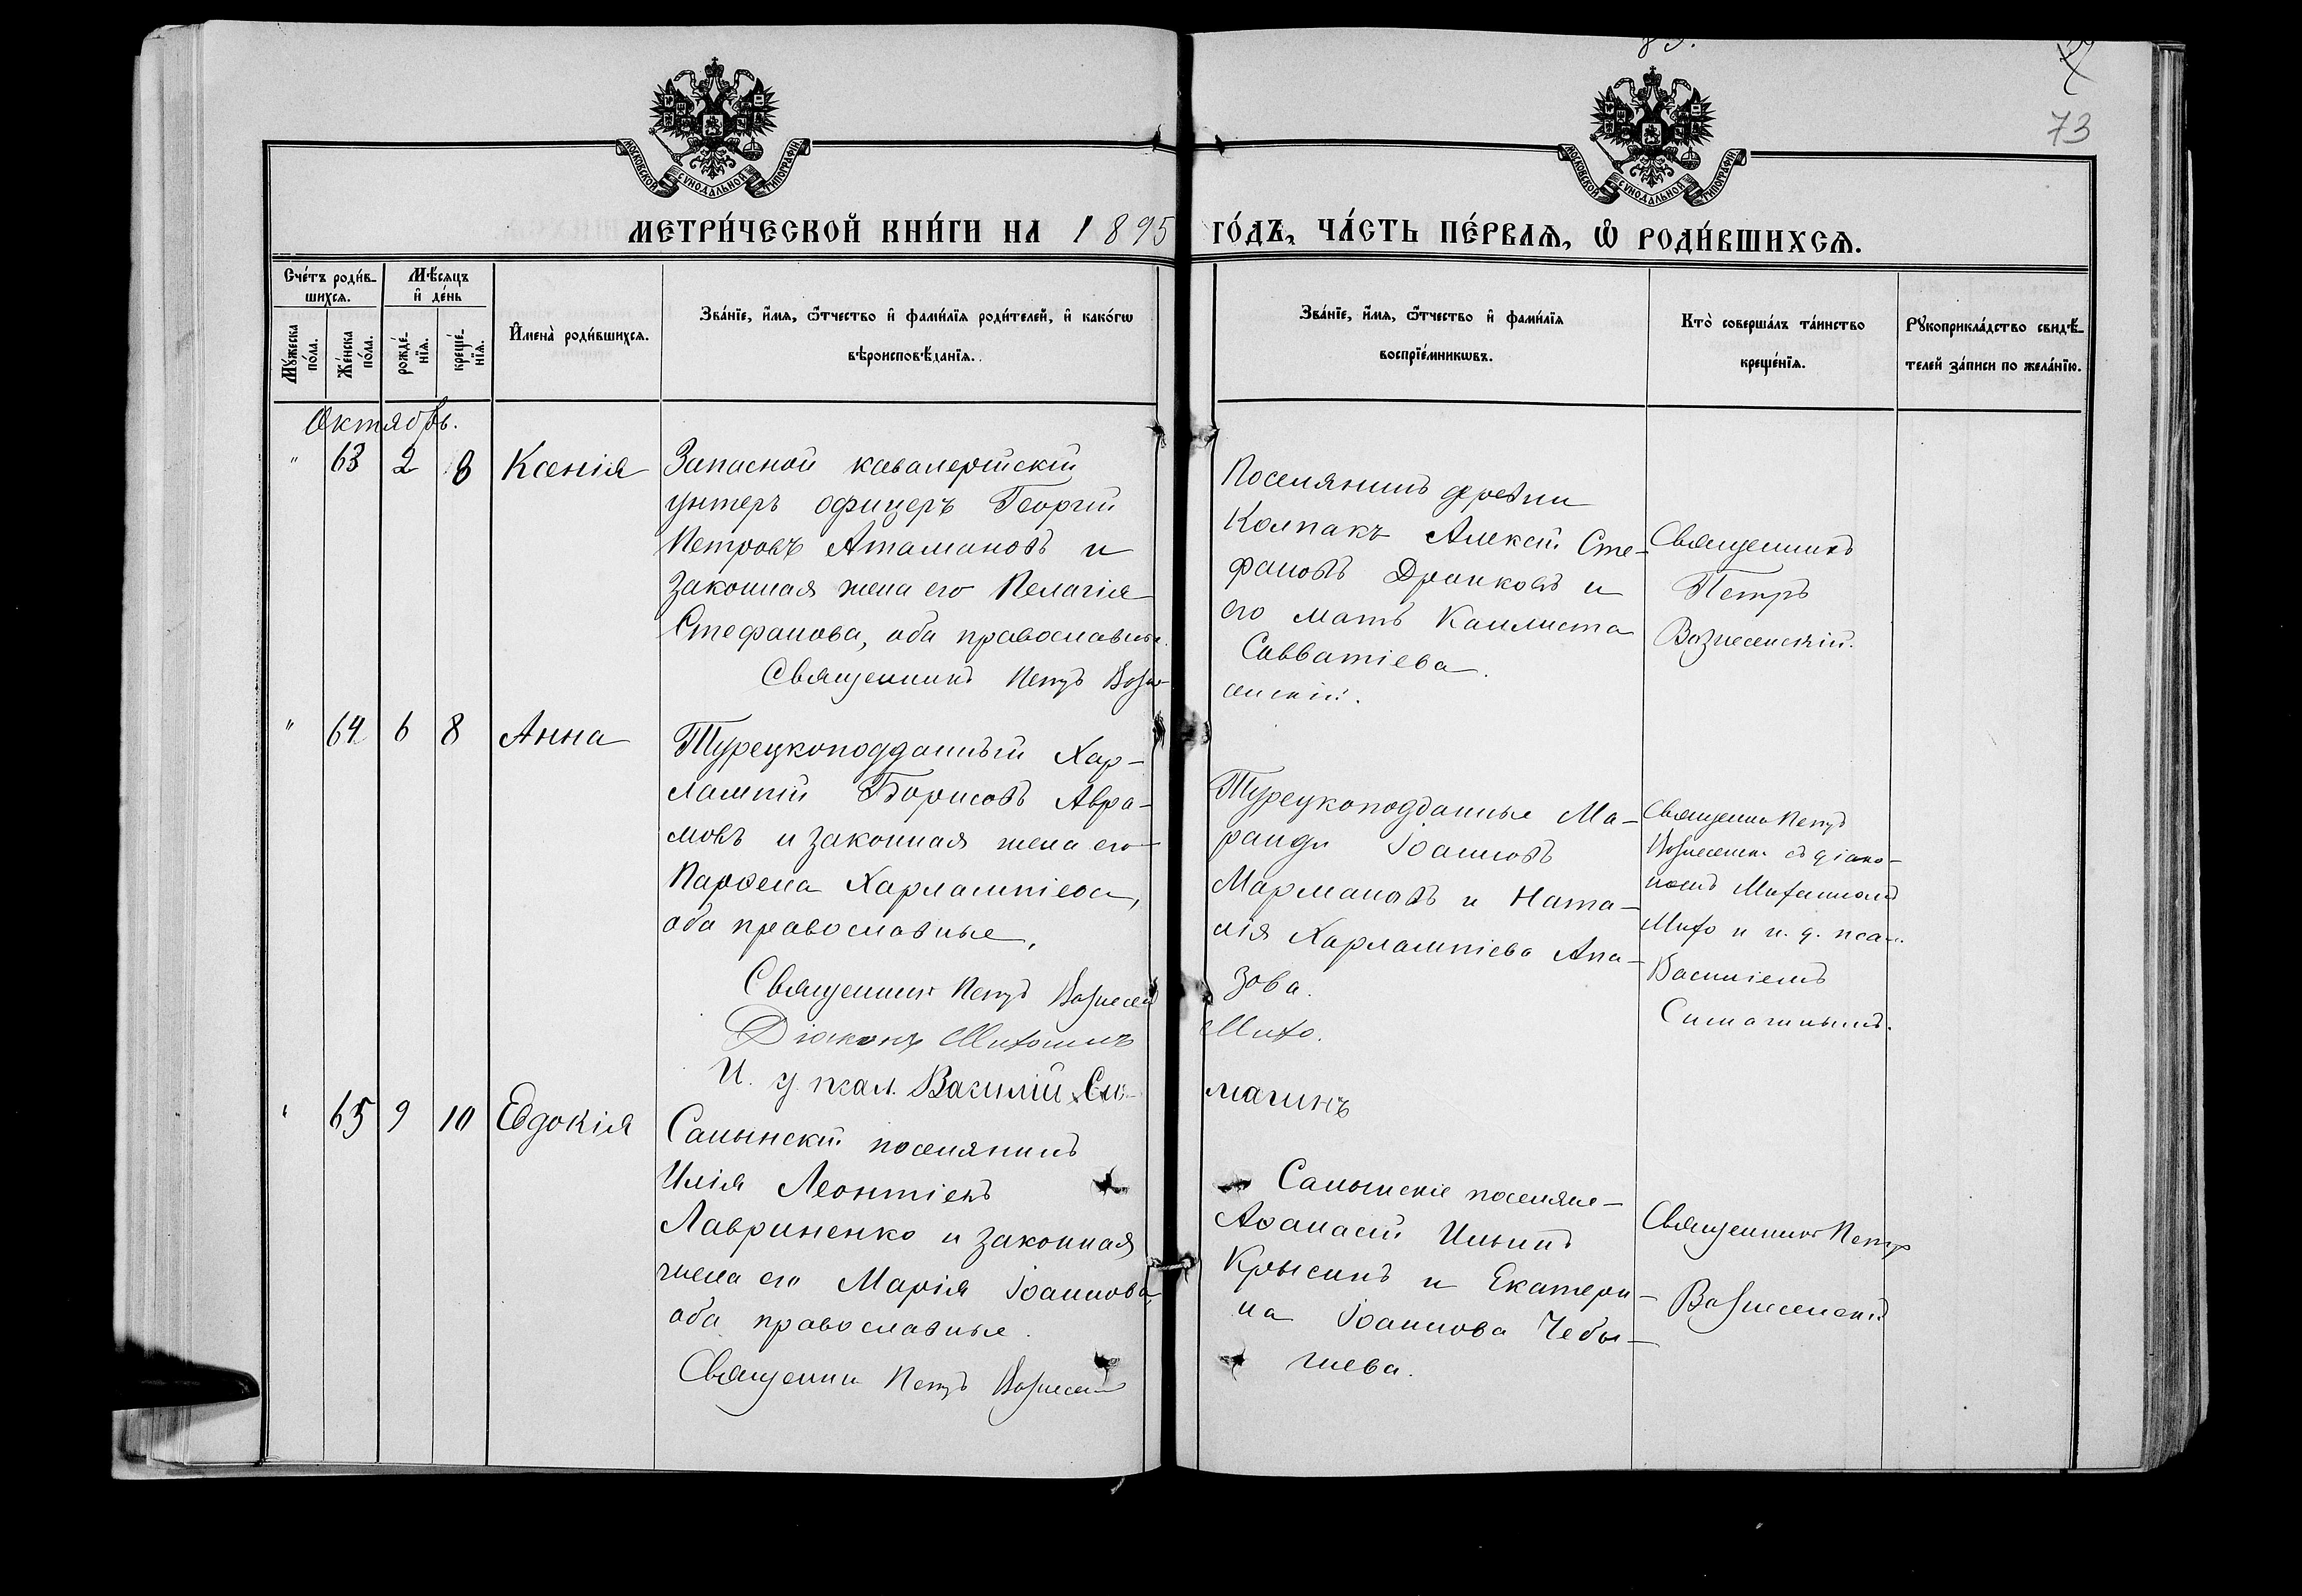 73
МОСКОВСКОЙ СѴНОДАЛЬНОЙ ТИПОГРАФІИ
МОСКОВСКОЙ СѴНОДАЛЬНОЙ ТИПОГРАФІИ
МЕТРИ́ЧЕСКОЙ КНИ́ГИ НА 1895 ГО́ДЪ, ЧА́СТЬ ПЕ́РВАѦ, Ѽ РОДИ́ВШИХСѦ.
Сче́тъ роди́в-
шихсѧ.
Мѣ́сѧцъ
и҆ де́нь
Мꙋ́жеска
по́ла.
Же́нска
по́ла.
рожде́-
нїѧ.
креще́-
нїѧ.
И҆мена̀ роди́вшихсѧ.
Зва́нїе, и҆́мѧ, ѻ҆́тчество и҆ фами́лїѧ роди́телей, и҆ како́гѡ
вѣроисповѣ́данїѧ.
Зва́нїе, и҆́мѧ, ѻ҆́тчество и҆ фами́лїѧ
воспрїе́мникѡвъ.
Кто̀ соверша́лъ та́инство
креще́нїѧ.
Рꙋкоприкла́дство свидѣ́-
телей за́писи по жела́нїю.
Октябрь.
" 63 2 8 Ксенія
Запасной кавалерійскій
унтеръ офицеръ Георгій
Петровъ Атамановъ и
законная жена его Пелагія
Стефанова, оба православные.
Священникъ Петръ Возне-
сенскій.
Поселянинъ деревни
Колпакъ Алексій Сте-
фановъ Дранковъ и
его мать Каллиста
Савватіева.
Священникъ
Петръ
Вознесенскій.
" 64 6 8 Анна
Турецкоподданный Хар-
лампій Борисовъ Авра-
мовъ и законная жена его
Парѳена Харлампіева,
оба православные.
Священникъ Петръ Вознесен
Діаконъ Михаилъ Михо.
И. д. псал. Василій Си-
магинъ
Турецкоподданные Ма-
ранди Іоанновъ
Мармановъ и Ната-
лія Харлампіева Апа-
зова.
Священни Петръ
Вознесенск. съ діако-
номъ Михаиломъ
Михо и и. д. псал.
Василіемъ
Симагинымъ.
" 65 9 10 Евдокія
Салынскій поселянинъ
Илія Леонтіевъ
Лавриненко и законная
жена его Марія Іоаннова,
оба православные.
Священни Петръ Вознесен
Салынскіе поселяне
Аѳанасій Ильинъ
Крысинъ и Екатери-
на Іоаннова Чебы-
шева.
Священникъ Петръ
Вознесенскій